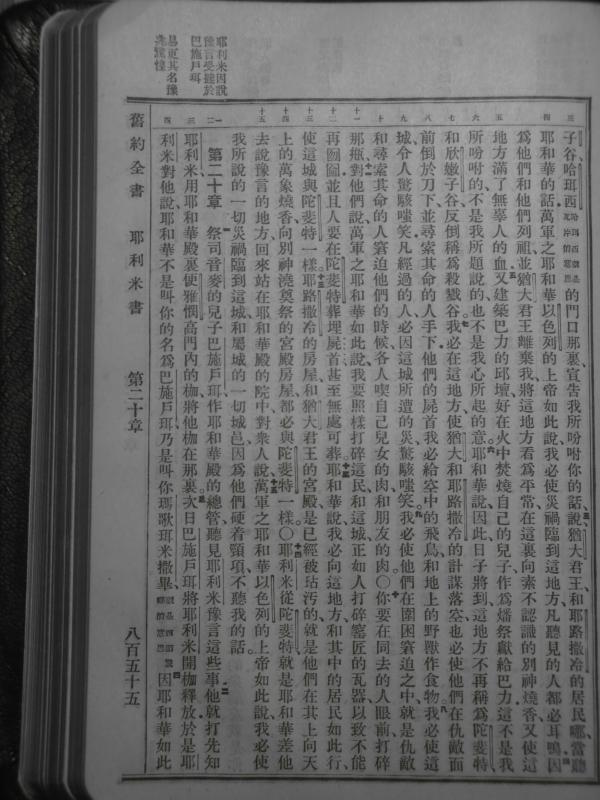 耶利米因說
豫言受撻於
巴施戶珥
易更其名豫
三
子谷哈珥西的門口那裏宣告我所吩咐你的話說猶大君王和耶路撒冷的居民哪當聽
四
耶和華的話萬軍之耶和華以色列的上帝如此說我必使災禍臨到這地方凡聽見的人都必耳鳴因
爲他們和他們列祖並猶大君王離棄我將這地方看爲平常在這裏向素不認識的別神燒香又使這
五
地方滿了無辜人的血又建築巴力的邱壇好在火中焚燒自己的兒子作爲燔祭獻給巴力這不是我
六
所吩咐的不是我所題說的也不是我心所起的意耶和華說因此日子將到這地方不再稱爲陀斐特
七
和欣嫩子谷反倒稱爲殺戮谷我必在這地方使猶大和耶路撒冷的計謀落空也必使他們在仇敵面
八
前倒於刀下並尋索其命的人手下他們的屍首我必給空中的飛鳥和地上的野獸作食物我必使這
九
城令人驚駭嗤笑凡經過的人必因這城所遭的災驚駭嗤笑我必使他們在圍困窘迫之中就是仇敵
十
和尋索其命的人窘迫他們的時候各人喫自己兒女的肉和朋友的肉〇你要在同去的人眼前打碎
十一
那瓶對他們說萬軍之耶和華如此說我要照樣打碎這民和這城正如人打碎窰匠的瓦器以致不能
十二
再囫圇並且人要在陀斐特葬埋屍首甚至無處可葬耶和華說我必向這地方和其中的居民如此行
十三
使這城與陀斐特一樣耶路撒冷的房屋和猶大君王的宮殿是已經被玷污的就是他們在其上向天
十四
上的萬象燒香向別神澆奠祭的宮殿房屋都必與陀斐特一樣〇耶利米從陀斐特就是耶和華差他
十五
去說豫言的地方回來站在耶和華殿的院中對衆人說萬軍之耶和華以色列的上帝如此說我必使
我所說的一切災禍臨到這城和屬城的一切城邑因爲他們硬着頸項不聽我的話
一二
第二十章 祭司音麥的兒子巴施戶珥作耶和華殿的總管聽見耶利米豫言這些事他就打先知
三
耶利米用耶和華殿裏便雅憫高門內的枷將他枷在那裏次日巴施戶珥將耶利米開枷釋放於是耶
四
利米對他說耶和華不是叫你的名爲巴施戶珥乃是叫你瑪歌珥米撒畢因耶和華如此
舊約全書 耶利米書 第二十章 八百五十五